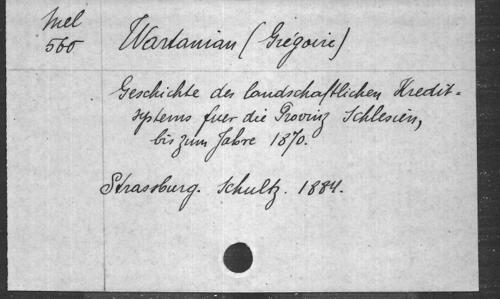 Mel
560
Wartanian (Grégoire)
Geschichte des landschaftlichen Kredit-
systems fuer die Provinz Schlesien,
bis zum Jahre 1870.
Strassburg. Schultz. 1884.